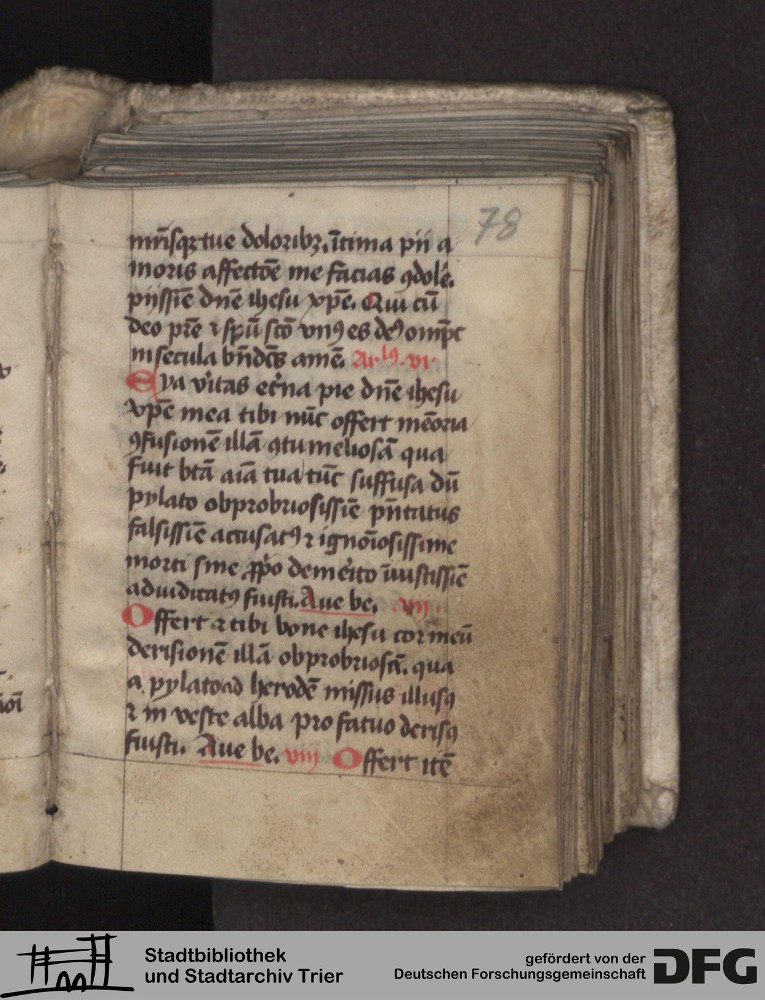 78
mr̄isqꝫ tue doloribꝫ. ītima pii a
moris affectōe me facias ꝯdolē.
pijssīe dn̄e ihesu xp̄e. Qui cū
deo pr̄e ⁊ sp̄u sc̄o vnꝰ es deꝰ om̄pc
in secula bn̄dc̄s amē. Ar. lꝰ. vi
ya vitas et̄na pie dn̄e ihesu
xp̄e mea tibi nūc offert mēoria
ꝯfusionē illā ꝯtumeliosā qua
fuit btā aīa tua tūc suffusa dū
pylato obprobriosissīe pn̄tatus
falsissīe accusatꝰ ⁊ ignoīosissime
morti sine ꝓp̄o demeīto īiustissīe
adiudicatꝰ fuisti. Aue be. vij.
Offert ⁊ tibi bone ihesu cor meū
derisionē illā obprobriosā. qua
a pylato ad herodē missus illusꝰ
⁊ in veste alba pro fatuo derisꝰ
fuisti. Aue be. viij Offert itē
Stadtbibliothek
und Stadtarchiv Trier
gefördert von der
Deutschen Forschungsgemeinschaft
DFG